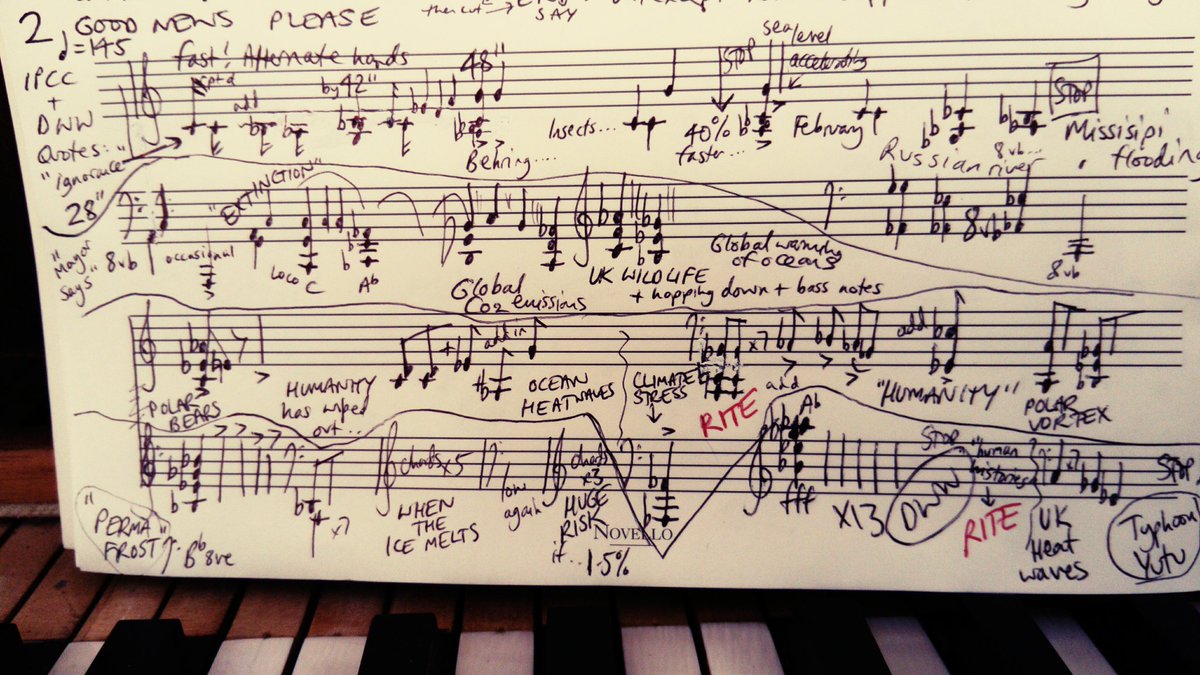 then cut
SAY
2 GOOD NEWS PLEASE
♩=145
fast! Alternate hands
IPCC
+
DWW
Quotes:
"Ignorance
add
by 42"
48"
Behring....
Insects...
STOP
40%
faster...
sea level
accelerating
February
8vb...
Russian river
STOP
Missisipi
flooding
28"
"Mayor
Says"
8vb
occasional
"EXTINCTION"
Loco C
Ab
Global
CO2 emissions
UK WILDLIFE
+ hopping down + bass notes
Global warming
of oceans
8vb
8vb
POLAR
BEARS
HUMANITY
has wiped
out...
+
add in
OCEAN
HEATWAVES
CLIMATE
STRESS
RITE
x7
add
add
"HUMANITY"
POLAR
VORTEX
"PERMA
FROST"
Bb 8ve
x7
chords x5
WHEN
THE
ICE MELTS
low
again
chords
x3
HUGE
RISK
if...
1.5%
NOVELLO
Ab
fff
x13
STOP
DWW
"human
histories"
RITE
x7
UK
Heat
waves
STOP
Typhoon
Yutu